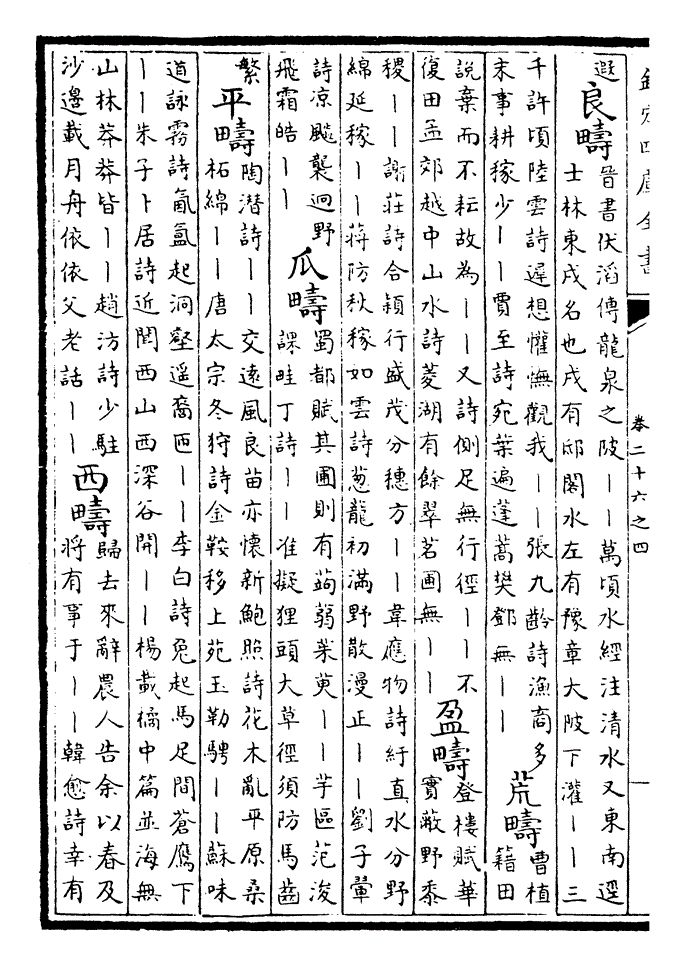 欽定四庫全書
卷二十六之四
遐
良疇
晉書伏滔傳龍泉之陂丨丨萬頃水經注清水又東南逕
士林東戍名也戍有邸閣水左有豫章大陂下灌丨丨三
千許頃陸雲詩遲想懽憮觀我丨丨張九齡詩漁商多
末事耕稼少丨丨賈至詩宛葉遍蓬蒿樊鄧無丨丨
荒疇
曹植
籍田
說棄而不耘故為丨丨又詩側足無行徑丨丨不
復田孟郊越中山水詩菱湖有餘翠茗圃無丨丨
盈疇
登樓賦華
實敝野黍
稷丨丨謝莊詩合穎行盛茂分穗方丨丨韋應物詩紆直水分野
綿延稼丨丨蔣防秋稼如雲詩葱蘢初滿野散漫正丨丨劉子翬
詩凉飈襲迥野
飛霜皓丨丨
瓜疇
蜀都賦其圃則有蒟蒻茱萸丨丨芋區范浚
課畦丁詩丨丨准擬狸頭大草徑須防馬齒
繁
平疇
陶潛詩丨丨交遠風良苗亦懷新鮑照詩花木亂平原桑
柘綿丨丨唐太宗冬狩詩金鞍移上苑玉勒騁丨丨蘇味
道詠霧詩氤氳起洞壑遥裔匝丨丨李白詩兔起馬足間蒼鷹下
丨丨朱子卜居詩近聞西山西深谷開丨丨楊載橘中篇並海無
山林莽莽皆丨丨趙汸詩少駐
沙邊載月舟依依父老話丨丨
西疇
歸去來辭農人告余以春及
將有事于丨丨韓愈詩幸有